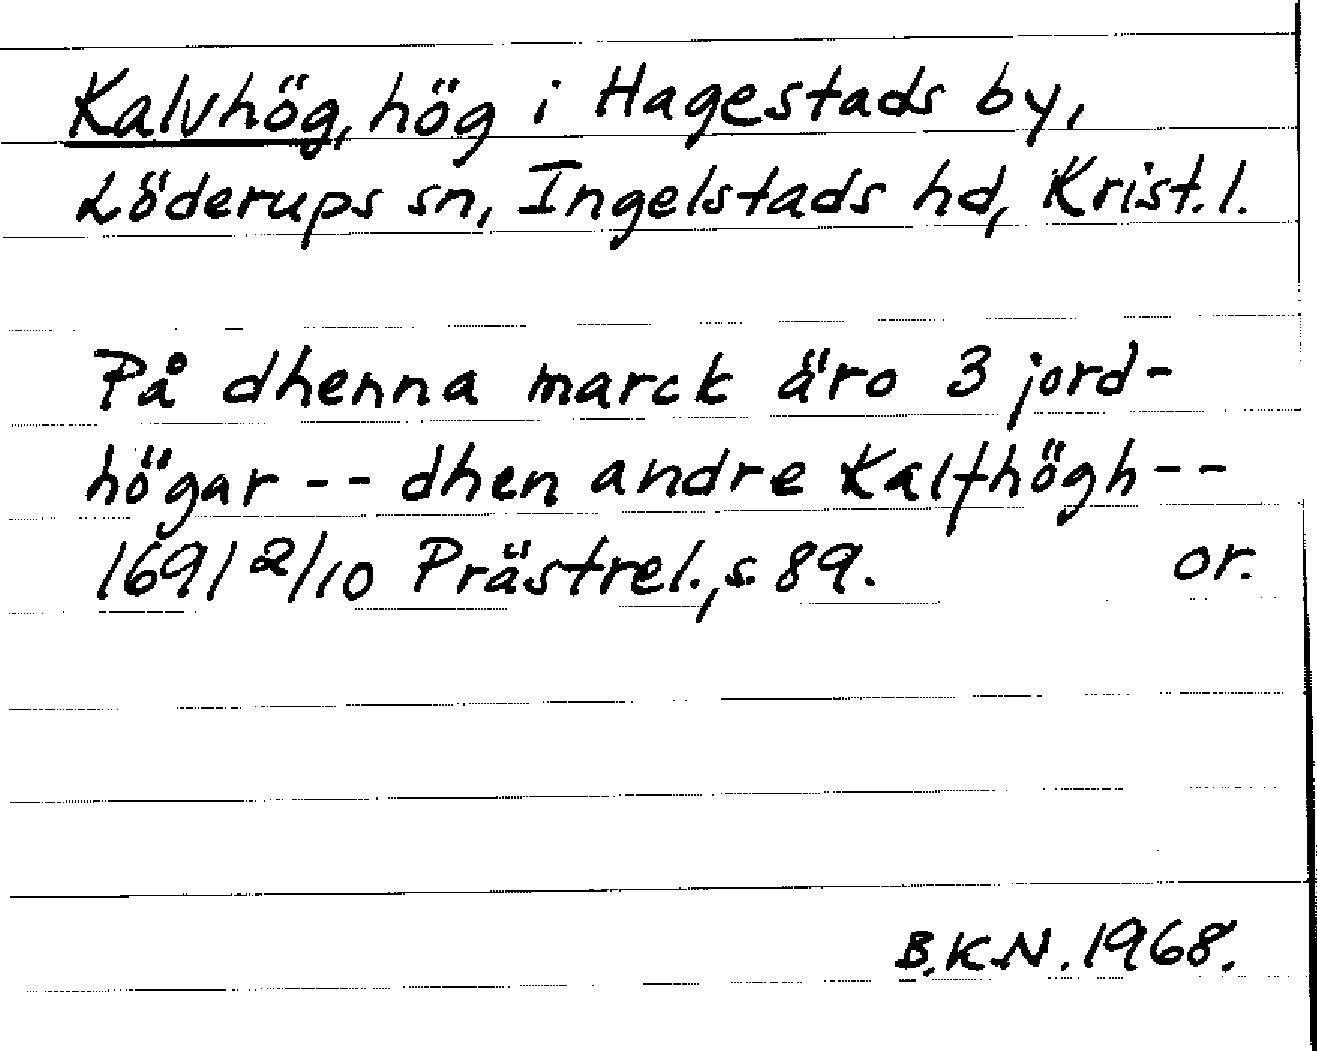 Kalvhög, hög i Hagestads by,
Löderups sn, Ingelstads hd, Krist. l.
På dhenna marck äro 3 jord-
högar -- dhen andre Kalfhögh --
1691 2/10 Prästrel., s. 89. or.
B.K.N. 1968.